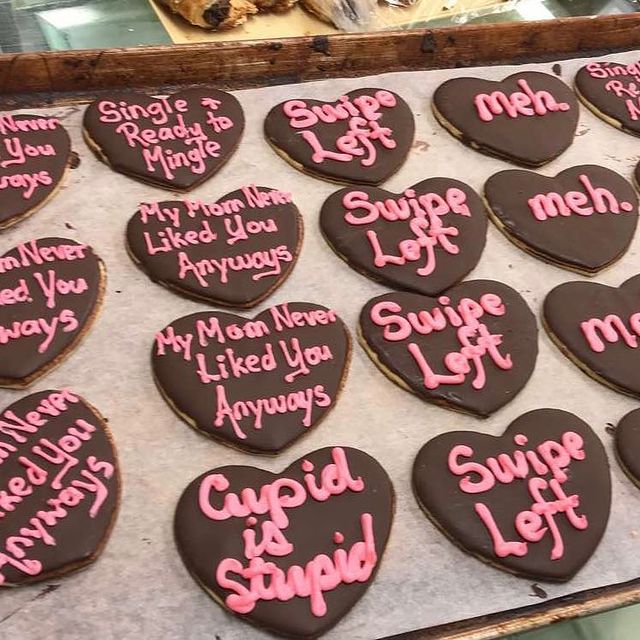 Never
You
ways
Single +
Ready to
Mingle
Swipe
Left
meh.
Singl
Re
M
m Never
ed You
ways
My Mom Never
Liked You
Anyways
Swipe
Left
meh.
My Mom Never
Liked You
Anyways
Swipe
Left
me
m Never
ked You
Anyways
Cupid
is
Stupid
Swipe
Left